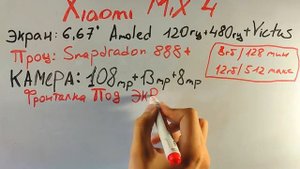 Xiaomi Mix 4
Экран: 6,67" Amoled 120гц+480гц+Victus
Проц: Snapdradon 888+
8гб/128 мин
12гб/512 макс
КАМЕРА: 108mp+13mp+8mp
Фронталка Под экр